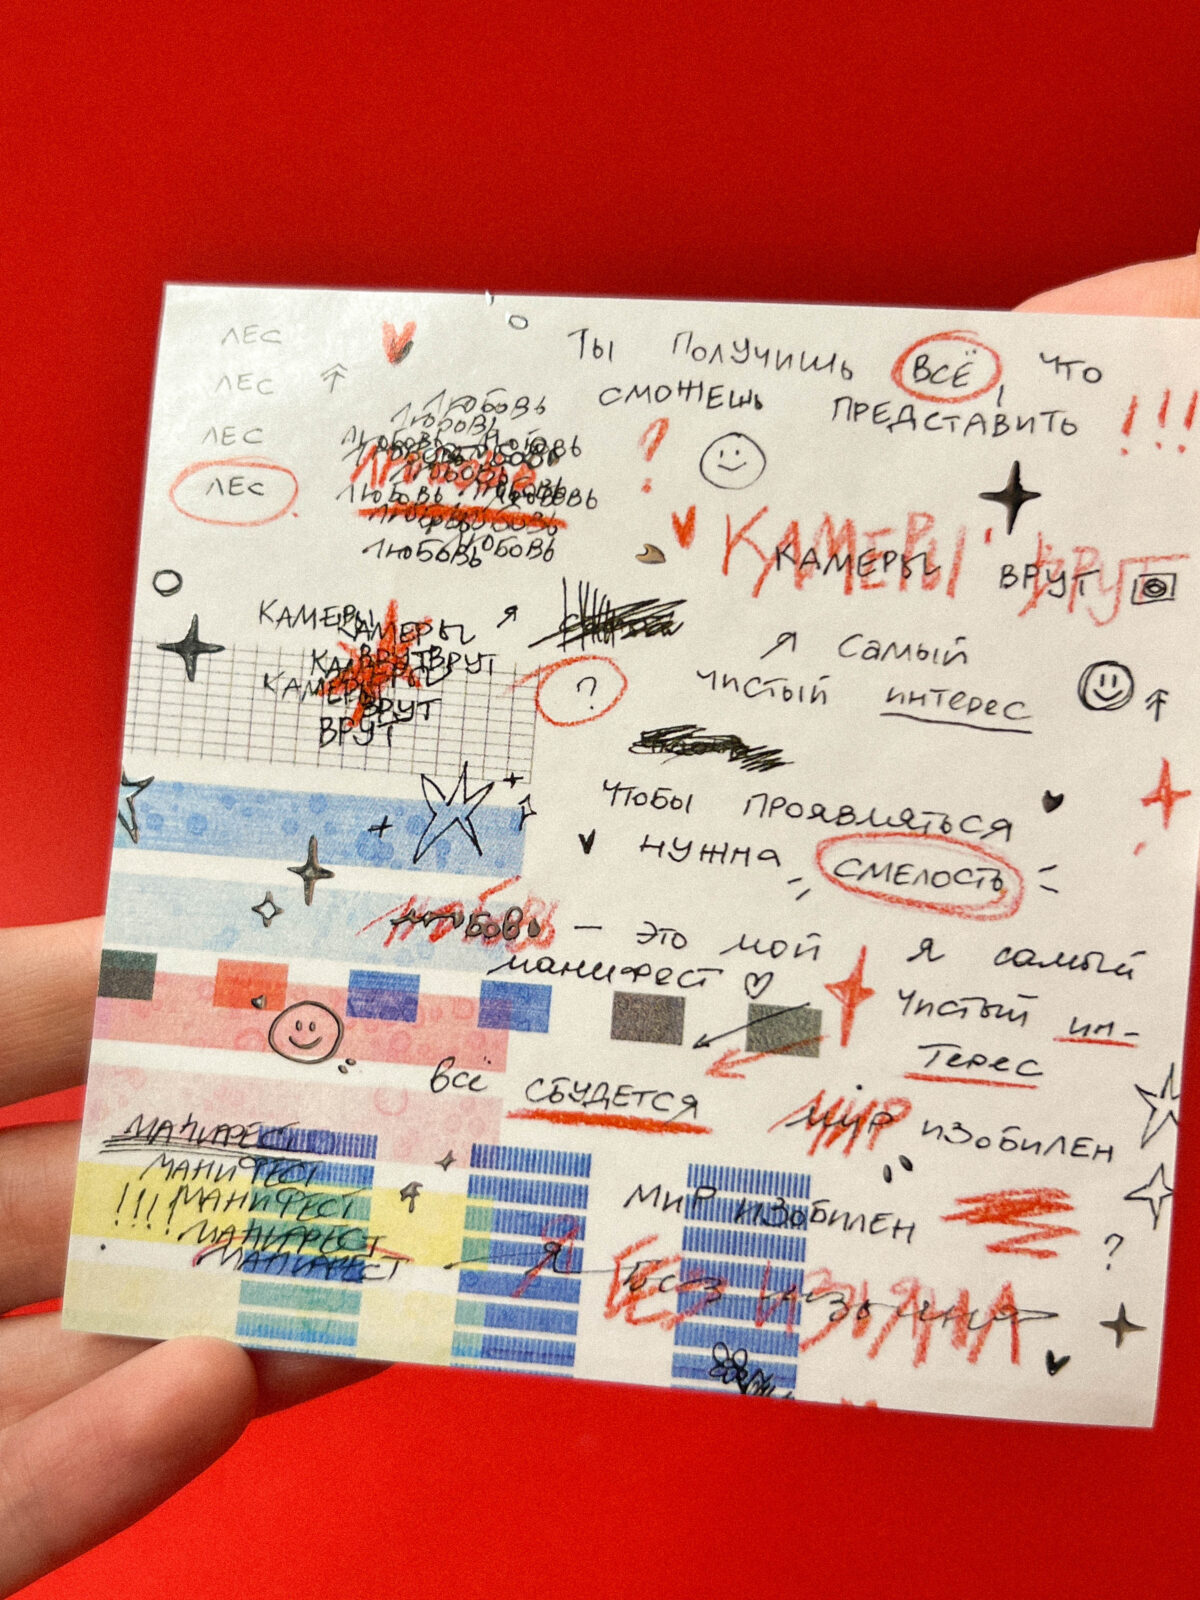 ЛЕС
ЛЕС
ЛЕС
ЛЕС
ЛЮБОВЬ
ЛЮБОВЬ
ЛЮБОВЬ
ЛЮБОВЬ
ЛЮБОВЬ
ЛЮБОВЬ
ТЫ ПОЛУЧИШЬ ВСЁ, ЧТО
СМОЖЕШЬ ПРЕДСТАВИТЬ !!!
?
КАМЕРЫ ВРУТ
КАМЕРЫ ВРУТ
КАМЕРЫ
КАМЕРЫ
ВРУТ ВРУТ
КАМЕРЫ
ВРУТ
ВРУТ
Я
?
Я САМЫЙ
ЧИСТЫЙ ИНТЕРЕС
ЧТОБЫ ПРОЯВЛЯТЬСЯ
НУЖНА СМЕЛОСТЬ
ЛЮБОВЬ — ЭТО МОЙ
МАНИФЕСТ
Я САМЫЙ
ЧИСТЫЙ ИН-
ТЕРЕС
ВСЁ СБУДЕТСЯ
МИР ИЗОБИЛЕН
МИР ИЗОБИЛЕН
?
МАНИФЕСТ
МАНИФЕСТ
!!! МАНИФЕСТ
МАНИФЕСТ
МАНИФЕСТ
Я БЕЗ ИЗЪЯНА